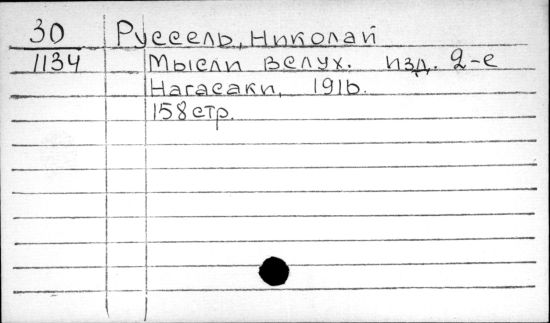 30 Руссель, Николай
1134 Мысли вслух. изд. 2-е
Нагасаки, 1916.
158 стр.